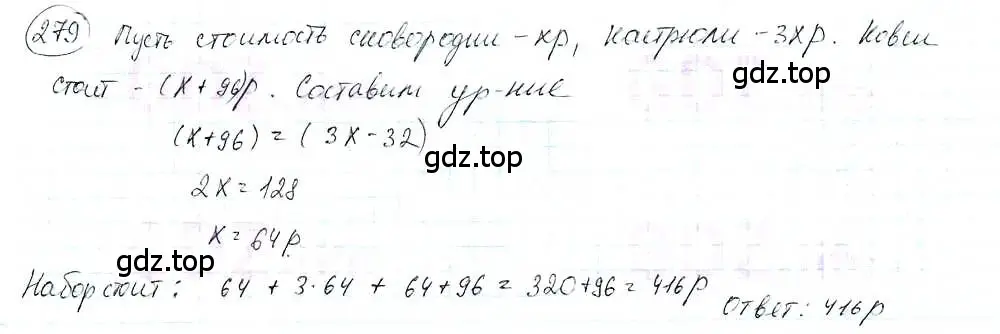 279 Пусть стоимость сковородки - хр, кастрюли - 3хр. Ковш
стоит - (х+96)р. Составим ур-ние
(х+96) = (3х-32)
gdz.top
2х = 128
х = 64р.
gdz.top
Набор стоит: 64 + 3·64 + 64+96 = 320+96 = 416р
Ответ: 416р
gdz.top